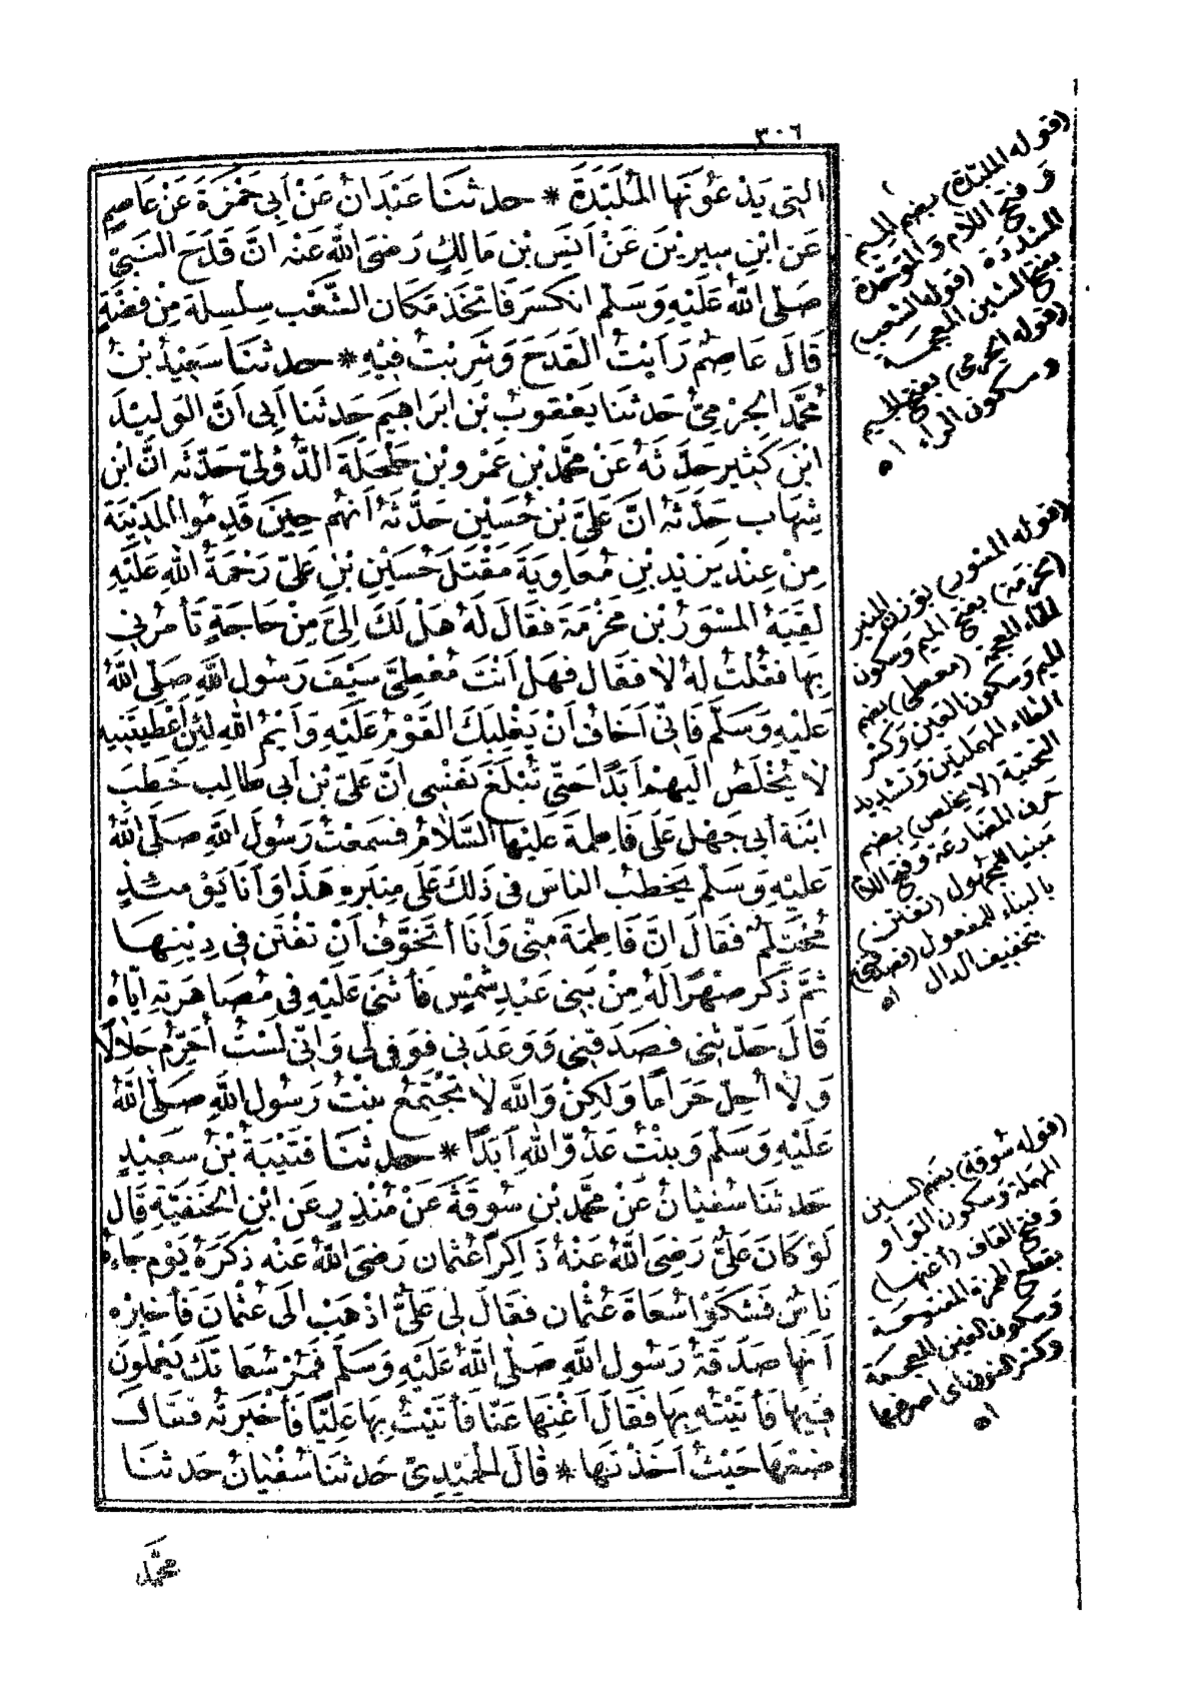 ٣٠٦
التِي يَدْعُونَهَا المُلَبَّدَةَ * حدثنَا عَبْدَانُ عَنْ اَبِي حَمْزَةَ عَنْ عَاصِمٍ
عَنِ ابْنِ سِيرِيْنَ عَنْ اَنَسِ بْنِ مَالِكٍ رَضِيَ اللّٰهُ عَنْهُ اَنَّ قَدَحَ النَّبِيِّ
صَلَّى اللّٰهُ عَلَيْهِ وَسَلَّمَ انْكَسَرَ فَاتَّخَذَ مَكَانَ الشَّعْبِ سِلْسِلَةً مِنْ فِضَّةٍ
قَالَ عَاصِمٌ رَاَيْتُ القَدَحَ وَشَرِبْتُ فِيْهِ * حدثنَا سَعِيْدُ بْنُ
مُحَمَّدٍ الجَرْمِيُّ حَدثنَا يَعْقوبُ بْنُ ابْرَاهِيْمَ حَدثنَا اَبِي اَنَّ الوَلِيْدَ
ابْنَ كَثِيرٍ حَدَّثَهُ عَنْ مُحَمَّدِ بْنِ عَمْرِو بْنِ حَلْحَلَةَ الدُّؤَلِيِّ حَدَّثَهُ اَنَّ ابْنَ
شِهَابٍ حَدَّثَهُ اَنَّ عَلِيَّ بْنَ حُسَيْنٍ حَدَّثَهُ اَنَّهُمْ حِيْنَ قَدِمُوا المَدِيْنَةَ
مِنْ عِنْدِ يَزِيْدَ بْنِ مُعَاوِيَةَ مَقْتَلَ حُسَيْنِ بْنِ عَلِيٍّ رَحْمَةُ اللّٰهِ عَلَيْهِ
لَقِيَهُ المِسْوَرُ بْنُ مَخْرَمَةَ فَقَالَ لَهُ هَلْ لَكَ اِلَيَّ مِنْ حَاجَةٍ تَأمُرُنِي
بِهَا فَقُلْتُ لَهُ لَا فَقَالَ فَهَلْ اَنْتَ مُعْطِيَّ سَيْفَ رَسُولِ اللّٰهِ صَلَّى اللّٰهُ
عَلَيْهِ وَسَلَّمَ فَاِنِّي اَخَافُ اَنْ يَغْلِبَكَ القَوْمُ عَلَيْهِ وَاَيْمُ اللّٰهِ لَئِنْ اَعْطَيْتَنِيهِ
لَا يُخْلَصُ اِلَيْهِمْ اَبَدًا حَتَّى تُبْلَغَ نَفْسِي اَنَّ عَلِيَّ بْنَ اَبِي طالِبٍ خَطَبَ
ابْنَةَ اَبِي جَهْلٍ عَلَى فَاطِمَةَ عَلَيْهَا السَّلَامُ فَسَمِعْتُ رَسُولَ اللّٰهِ صَلَّى اللّٰهُ
عَلَيْهِ وَسَلَّمَ يَخطبُ الناسَ فِي ذَلِكَ عَلَى مِنْبَرِهِ هَذَا وَاَنَا يَوْمَئِذٍ
مُحْتَلِمٌ فَقَالَ اِنَّ فَاطِمَةَ مِنِّي وَاَنَا اَتَخَوَّفُ اَنْ تُفْتَنَ فِي دِيْنِهَا
ثُمَّ ذَكَرَ صِهْرًا لَهُ مِنْ بَنِي عَبْدِ شَمْسٍ فَأَثْنَى عَلَيْهِ فِي مُصَاهَرَتِهِ اِيَّاهُ
قَالَ حَدَّثَنِي فَصَدَقَنِي وَوَعَدَنِي فَوَفَى لِي وَاِنِّي لَسْتُ اُحَرِّمُ حَلَالًا
وَلَا اُحِلُّ حَرَامًا وَلَكِنْ وَاللّٰهِ لَا تَجْتَمِعُ بِنْتُ رَسُولِ اللّٰهِ صَلَّى اللّٰهُ
عَلَيْهِ وَسَلَّمَ وَبِنْتُ عَدُوِّ اللّٰهِ اَبَدًا * حدثنَا قُتَيْبَةُ بْنُ سَعِيْدٍ
حَدثنَا سُفْيَانُ عَنْ مُحَمَّدِ بْنِ سُوقَةَ عَنْ مُنْذِرٍ عَنِ ابْنِ الحَنَفِيَّةِ قَالَ
لَوْ كَانَ عَلِيٌّ رَضِيَ اللّٰهُ عَنْهُ ذَاكِرًا عُثْمَانَ رَضِيَ اللّٰهُ عَنْهُ ذَكَرَهُ يَوْمَ جَاءَهُ
نَاسٌ فَشَكَوْا سُعَاةَ عُثْمَانَ فَقَالَ لِي عَلِيٌّ اذْهَبْ اِلَى عُثْمَانَ فَأَخْبِرْهُ
اَنَّهَا صَدَقَةُ رَسُولِ اللّٰهِ صَلَّى اللّٰهُ عَلَيْهِ وَسَلَّمَ فَمُرْ سُعَاتَكَ يَعْمَلُونَ
فِيْهَا فَأَتَيْتُهُ بِهَا فَقَالَ اَغْنِهَا عَنَّا فَأَتَيْتُ بِهَا عَلِيًّا فَأَخْبَرْتُهُ فَقَالَ
ضَعْهَا حَيْثُ اَخَذْتَهَا * قَالَ الحُمَيْدِيُّ حَدثنَا سُفْيَانُ حَدثنَا
محمد
(قوله الملبّدة) بضم الميم
وفتح اللام والموحّدة
المشدّدة (قوله الشعب)
بفتح الشين المعجمة
(قوله الجرمي) بفتح الجيم
وسكون الراء اه
(قوله المسور) بوزن المنبر
(مخرمة) بفتح الميم وسكون
الخاء المعجمة (معطي) بضم
الميم وسكون العين وكسر
الطاء المهملتين وتشديد
التحتية (لا يخلص) بضم
حرف المضارعة وفتح اللام
مبنيا للمجهول (تفتن)
بالبناء للمفعول (فصدقني)
بتخفيف الدال اه
(قوله سُوقة) بضم السين
المهملة وسكون الواو
وفتح القاف (أغنها)
بقطع الهمزة المفتوحة
وسكون الغين المعجمة
وكسر النون اى اصرفها
اه